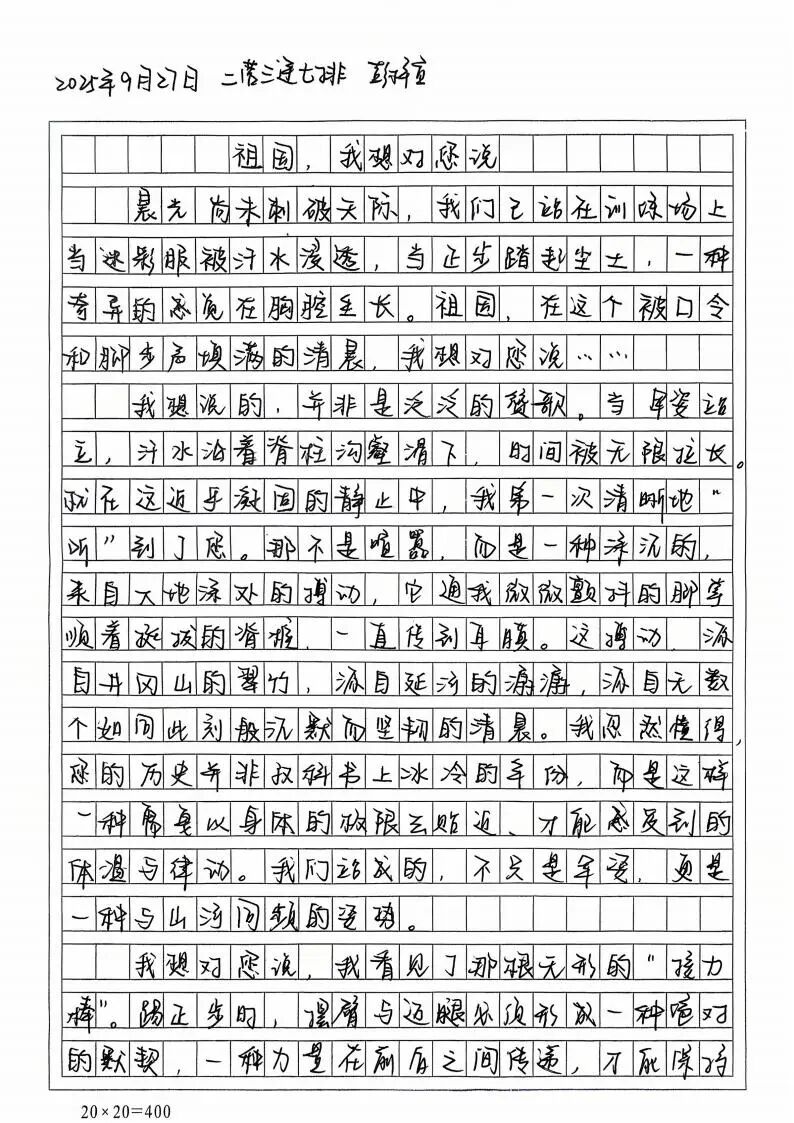 2025年9月27日 二营三连七排 彭
祖国，我想对您说
晨光尚未刺破天际，我们已站在训练场上
当迷彩服被汗水浸透，当正步踏起尘土，一种
奇异的感觉在胸腔生长。祖国，在这个被口令
和脚步声填满的清晨，我想对您说……
我想说的，并非是泛泛的赞歌。当军姿站
立，汗水沿着脊柱沟壑滑下，时间被无限拉长。
就在这近乎凝固的静止中，我第一次清晰地“
听”到了您。那不是喧嚣，而是一种深沉的，
来自大地深处的搏动，它通我微微颤抖的脚掌
顺着挺拔的脊椎，一直传到耳膜。这搏动，源
自井冈山的翠竹，源自延河的潺潺，源自无数
个如同此刻般沉默而坚韧的清晨。我忽然懂得，
您的历史并非教科书上冰冷的年份，而是这样
一种需要以身体的极限去贴近、才能感受到的
体温与律动。我们站成的，不只是军姿，更是
一种与山河同频的姿势。
我想对您说，我看见了那根无形的“接力
棒”。踢正步时，摆臂与迈腿必须形成一种绝对
的默契，一种力量在前后之间传递，才能保持
20×20=400